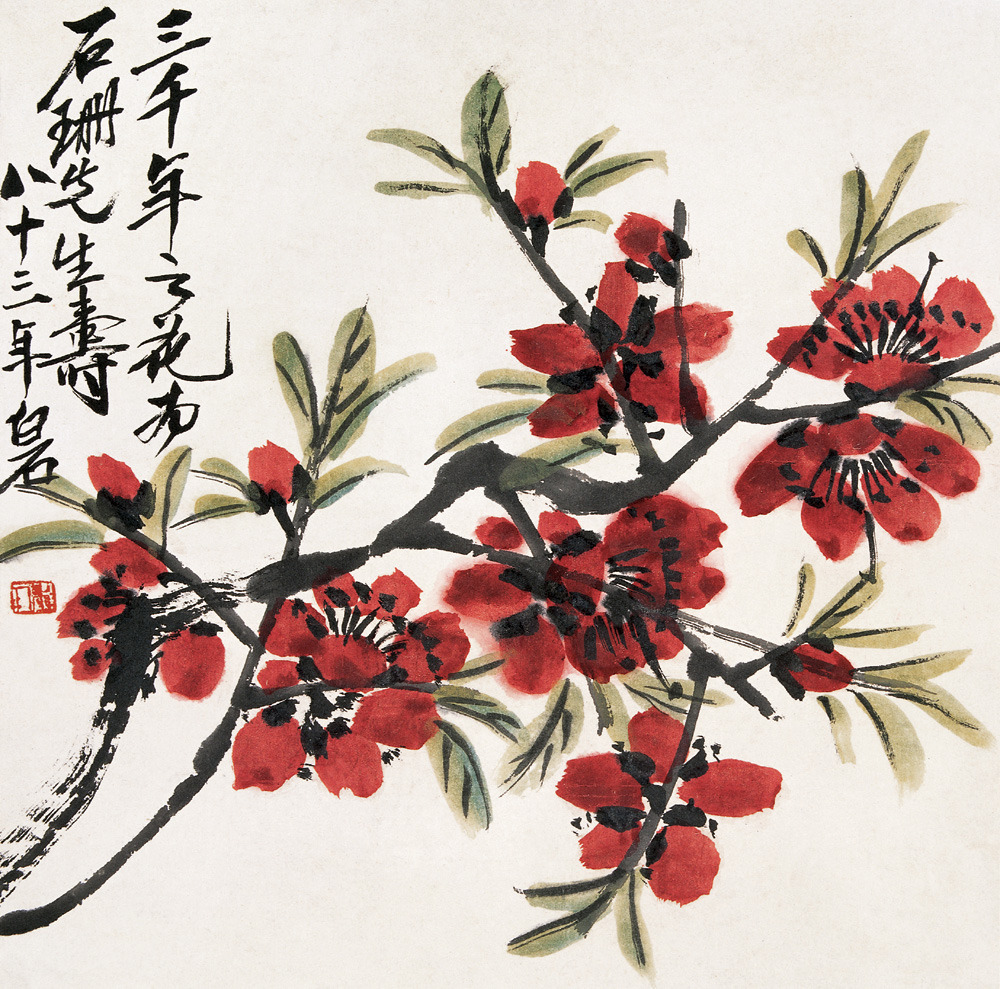 三千年之花为
石珊先生壽
八十三年白石